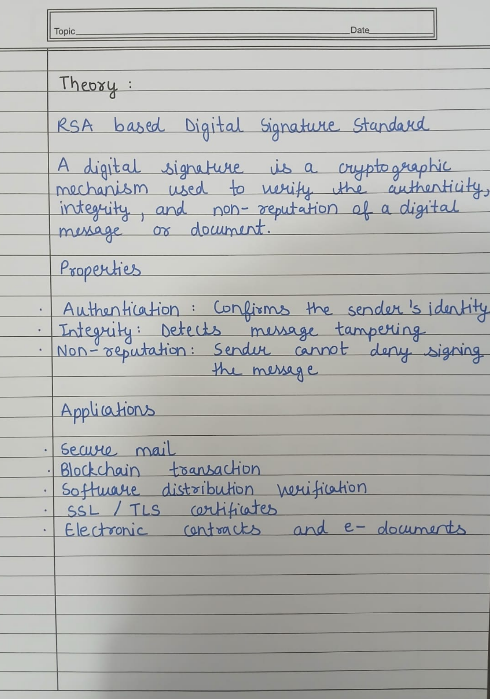 Topic Date
Theory :
RSA based Digital Signature Standard
A digital signature is a cryptographic
mechanism used to verify the authenticity,
integrity, and non-reputation of a digital
message or document.
Properties
· Authentication : Confirms the sender's identity
· Integrity: Detects message tampering
· Non-reputation: Sender cannot deny signing
the message
Applications
· Secure mail
· Blockchain transaction
· Software distribution verification
· SSL / TLS certificates
· Electronic contracts and e-documents